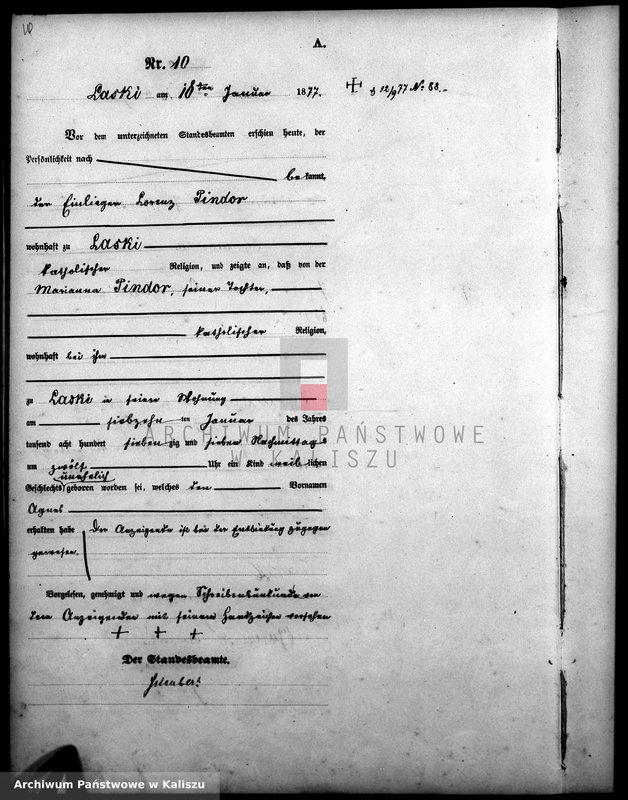 10
A.
Nr. 10
Laski am 18ten Januar 1877.
† d 12/9 77 No 88.
Vor dem unterzeichneten Standesbeamten erschien heute, der
Persönlichkeit nach
bekannt,
der Einlieger Lorenz Pindor
wohnhaft zu Laski
katholischer Religion, und zeigte an, daß von der
Marianna Pindor, seiner Tochter,
katholischer Religion,
wohnhaft bei ihm
zu Laski in seiner Wohnung
am siebzehn ten Januar des Jahres
tausend acht hundert sieben zig und sieben Nachmittags
um zwölf Uhr ein Kind weiblichen
unehelich
Geschlechts geboren worden sei, welches den Vornamen
Agnes
erhalten habe Der Anzeigende ist bei der Entbindung zugegen
gewesen.
Vorgelesen, genehmigt und wegen Schreibensunkunde von
dem Anzeigenden mit seinem Handzeichen versehen
+ + +
Der Standesbeamte.
ARCHIWUM PAŃSTWOWE
W KALISZU
Archiwum Państwowe w Kaliszu